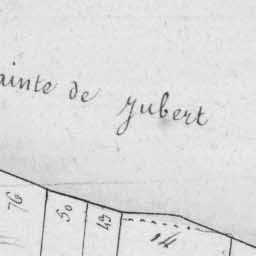 ainte de Jubert
76
50
49
14